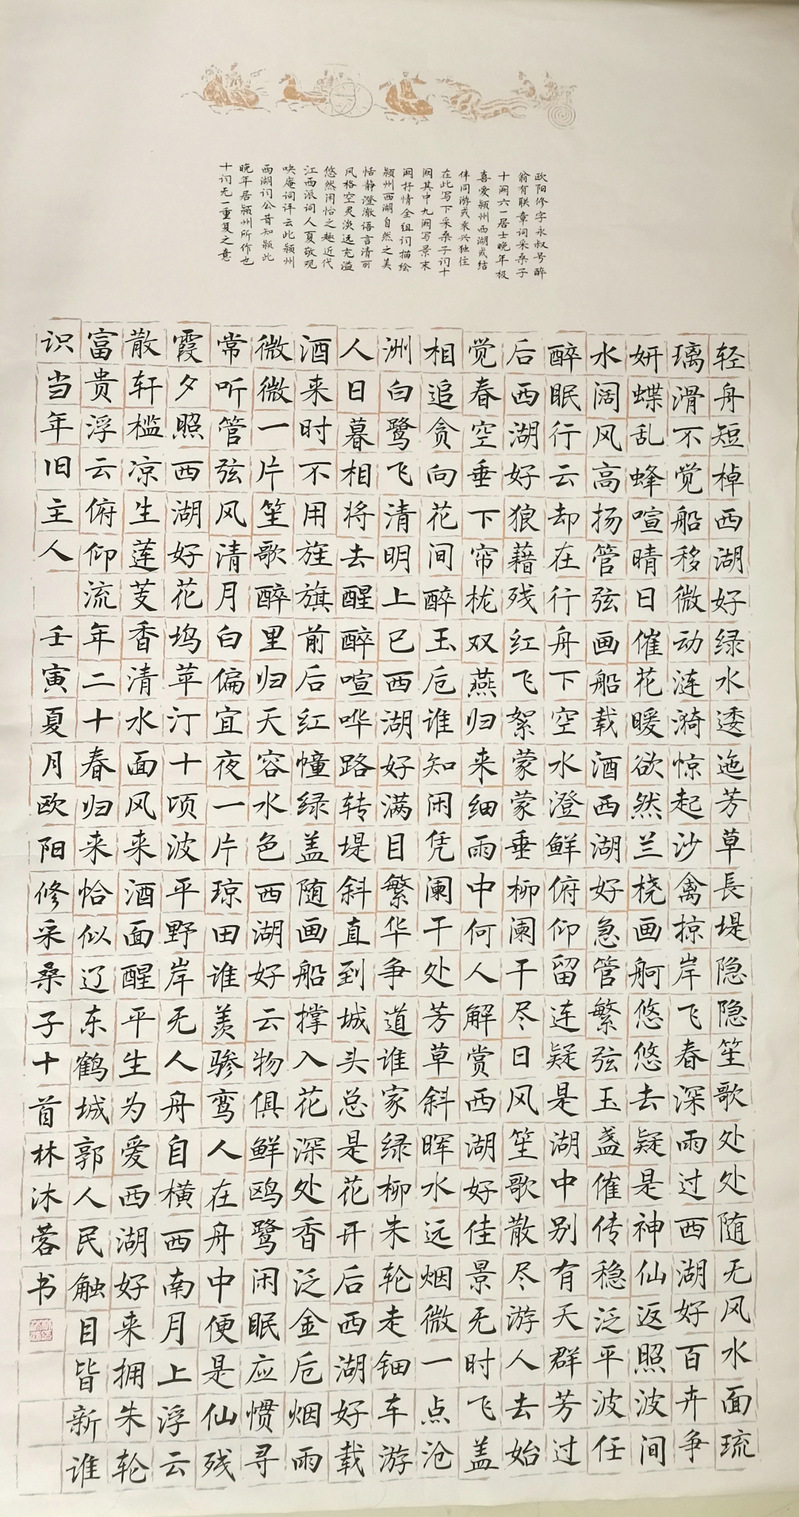 欧阳修字永叔号醉
翁有联章词采桑子
十阕六一居士晚年极
喜爱颍州西湖或结
伴同游或乘兴独往
在此写下采桑子词十
阕其中九阕写景末
阕抒情全组词描绘
颍州西湖自然之美
恬静澄澈语言清丽
风格空灵淡远充溢
悠然闲怡之趣近代
江西派词人夏敬观
吷庵词评云此颍州
西湖词公昔知颍此
晚年居颍州所作也
十词无一重复之意
轻舟短棹西湖好绿水逶迤芳草長堤隐隐笙歌处处随无风水面琉
璃滑不觉船移微动涟漪惊起沙禽掠岸飞春深雨过西湖好百卉争
妍蝶乱蜂喧晴日催花暖欲然兰桡画舸悠悠去疑是神仙返照波间
水阔风高扬管弦画船载酒西湖好急管繁弦玉盏催传稳泛平波任
醉眠行云却在行舟下空水澄鲜俯仰留连疑是湖中别有天群芳过
后西湖好狼藉残红飞絮蒙蒙垂柳阑干尽日风笙歌散尽游人去始
觉春空垂下帘栊双燕归来细雨中何人解赏西湖好佳景无时飞盖
相追贪向花间醉玉卮谁知闲凭阑干处芳草斜晖水远烟微一点沧
洲白鹭飞清明上巳西湖好满目繁华争道谁家绿柳朱轮走钿车游
人日暮相将去醒醉喧哗路转堤斜直到城头总是花开后西湖好载
酒来时不用旌旗前后红幢绿盖随画船撑入花深处香泛金卮烟雨
微微一片笙歌醉里归天容水色西湖好云物俱鲜鸥鹭闲眠应惯寻
常听管弦风清月白偏宜夜一片琼田谁羡骖鸾人在舟中便是仙残
霞夕照西湖好花坞苹汀十顷波平野岸无人舟自横西南月上浮云
散轩槛凉生莲芰香清水面风来酒面醒平生为爱西湖好来拥朱轮
富贵浮云俯仰流年二十春归来恰似辽东鹤城郭人民触目皆新谁
识当年旧主人 壬寅夏月欧阳修采桑子十首林沐蓉书